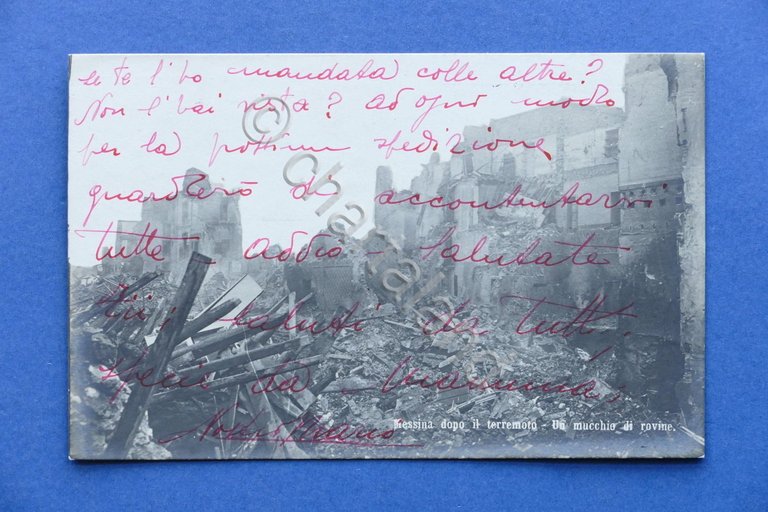 se te l'ho mandata colle altre?
Non l'hai vista? ad ogni modo
per la prossima spedizione
guarderò di accontentarvi
tutte - addio - Salutate
Zii; saluti da tutti,
specie da mamma,
Messina dopo il terremoto - Un mucchio di rovine.
© chartaland